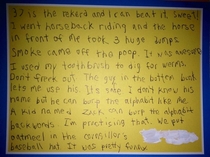 37 is the rekord and I can beat it. Sweet!
I went horseback riding and the horse
in front of me took 3 huge dumps.
Smoke came off the poop. It was awesome.
I used my toothbrush to dig for worms.
Dont freek out. The guy in the bottem bunk
lets me use his. Its safe. I don't know his
name but he can burp the alphabet like me.
A kid named Zack can burp the alphabet
backwords. I'm practising that. We put
oatmeel in the
baseball hat. It was pretty funny